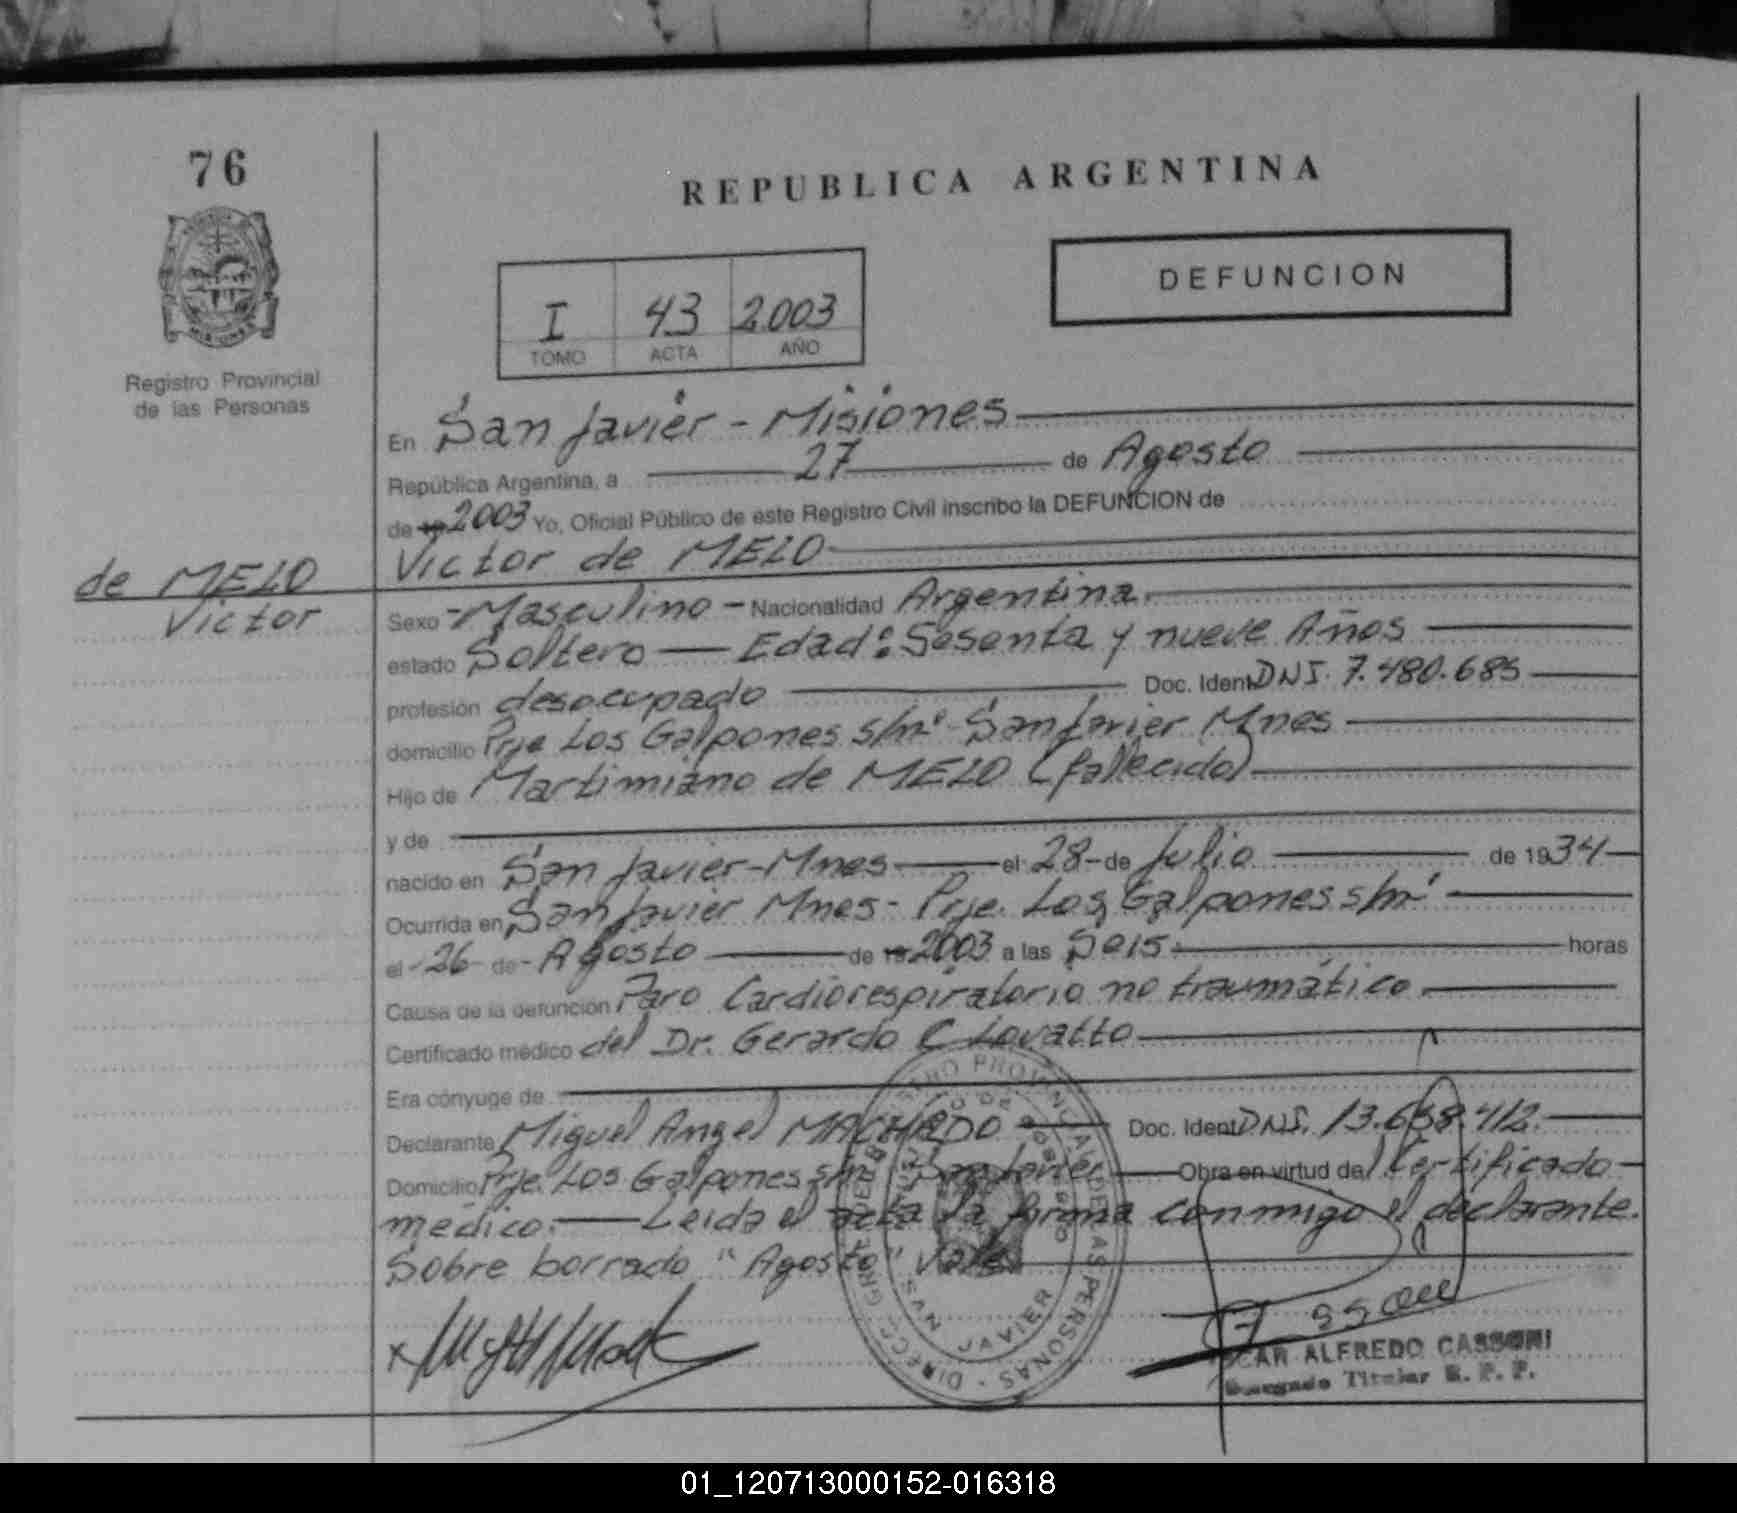 76
REPUBLICA ARGENTINA
DEFUNCION
I 43 2.003
TOMO ACTA AÑO
Registro Provincial
de las Personas
En San Javier - Misiones
República Argentina, a 27 de Agosto
de 2003 Yo, Oficial Público de este Registro Civil inscribo la DEFUNCION de
Victor de MELO
de MELO
Victor
Sexo - Masculino - Nacionalidad Argentina.
estado Soltero — Edad: Sesenta y nueve Años
profesión desocupado Doc. Ident DNI. 7.480.685
domicilio Prje Los Galpones s/nº - San Javier Mnes
Hijo de Martimiano de MELO (fallecido)
y de
nacido en San Javier - Mnes el 28 - de Julio de 1934
Ocurrida en San Javier Mnes - Prje. Los Galpones s/nº
el - 26 - de - Agosto de 2003 a las Seis horas
Causa de la defunción Paro Cardiorespiratorio no traumático.
Certificado médico del Dr. Gerardo C Lovatto
Era cónyuge de
Declarante Miguel Angel MACHADO Doc. Ident DNI. 13.658.412.
Domicilio Prje. Los Galpones s/nº San Javier Obra en virtud del Certificado
médico. — Leida el acta la firma conmigo el declarante.
Sobre borrado "Agosto" Vale
REGISTRO PROVINCIAL DE LAS PERSONAS
SAN JAVIER
OSCAR ALFREDO CASSONI
Delegado Titular R. P. P.
01_120713000152-016318